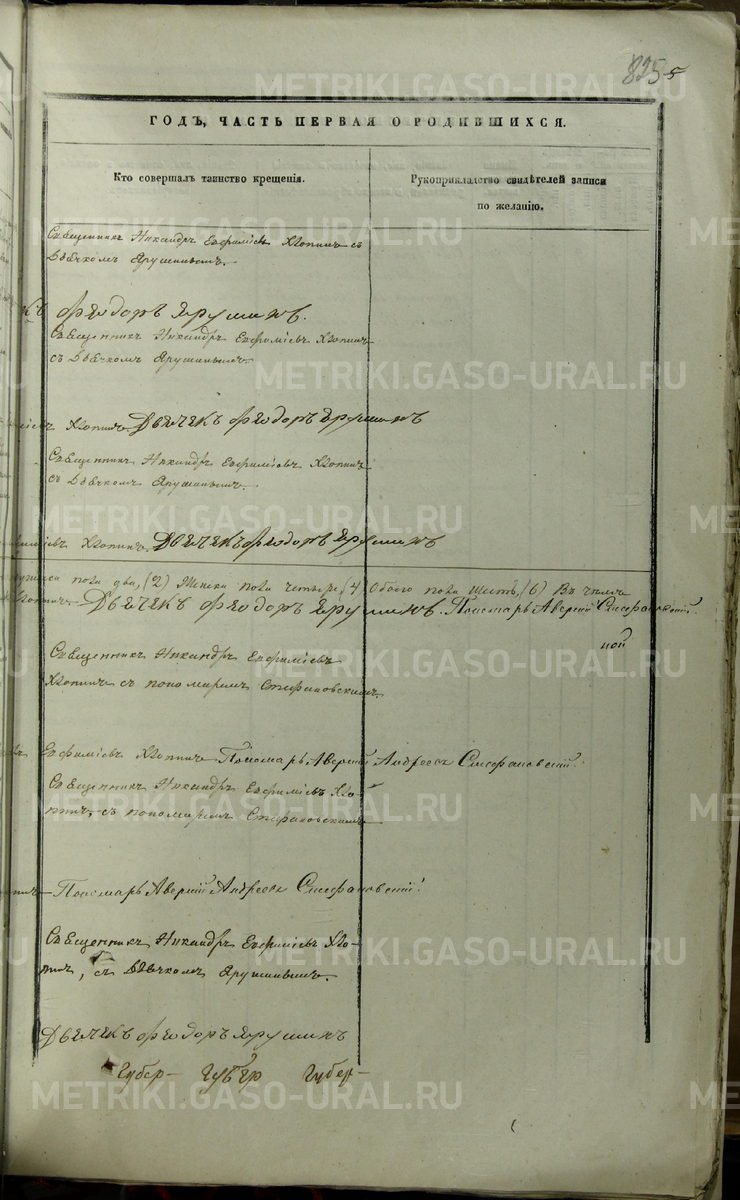 825
ГОДЪ, ЧАСТЬ ПЕРВАЯ О РОДИВШИХСЯ.
Кто совершалъ таинство крещенія.
Рукоприкладство свидѣтелей записи
по желанію.
Священникъ Никандръ Евфиміевъ Хлопинъ съ
Дьячкомъ Ярушинымъ.
Ѳеодоръ Ярушинъ.
Священникъ Никандръ Евфиміевъ Хлопинъ
съ Дьячкомъ Ярушинымъ
Хлопинъ Дьячекъ Ѳеодоръ Ярушинъ
Священникъ Никандръ Евфиміевъ Хлопинъ
съ Дьячкомъ Ярушинымъ.
Хлопинъ. Дьячекъ Ѳеодоръ Ярушинъ
пола два, (2) Женска пола четыре, (4) Обоего пола шесть, (6) Въ числѣ
Дьячекъ Ѳеодоръ Ярушинъ. Пономарь Аверкій Стефановскій.
Священникъ Никандръ Евфиміевъ
Хлопинъ съ пономаремъ Стефановскимъ
Евфиміевъ Хлопинъ Пономарь Аверкій Андреевъ Стефановскій.
Священникъ Никандръ Евфиміевъ Хло-
пинъ, съ пономаремъ Стефановскимъ
Пономарь Аверкій Андреевъ Стефановскій.
Священникъ Никандръ Евфиміевъ Хло-
пинъ, съ Дьячкомъ Ярушинымъ.
Дьячекъ Ѳеодоръ Ярушинъ
Губер- Губер Губер-
METRIKI.GASO-URAL.RU